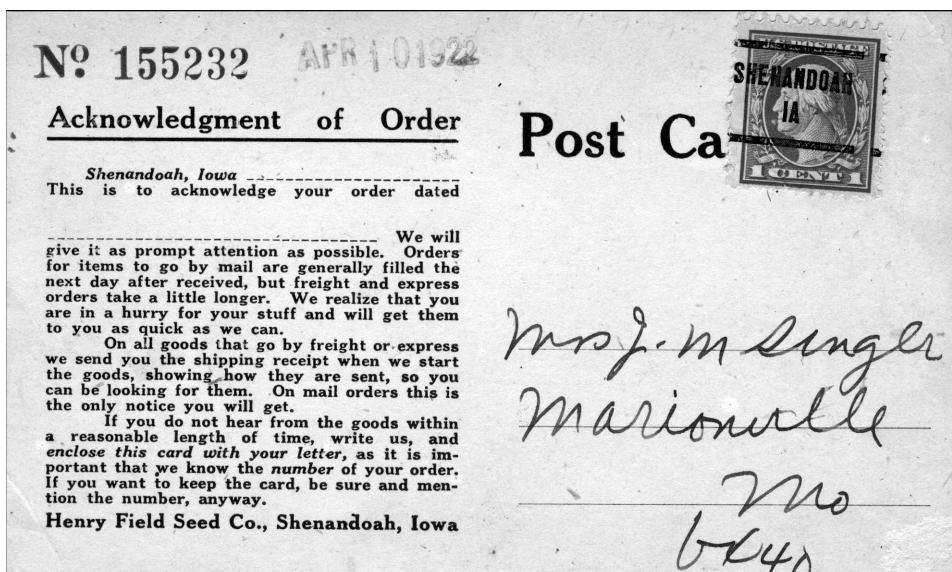 No. 155232
APR 10 1922
Acknowledgment of Order
Shenandoah, Iowa
This is to acknowledge your order dated
We will
give it as prompt attention as possible. Orders
for items to go by mail are generally filled the
next day after received, but freight and express
orders take a little longer. We realize that you
are in a hurry for your stuff and will get them
to you as quick as we can.
On all goods that go by freight or express
we send you the shipping receipt when we start
the goods, showing how they are sent, so you
can be looking for them. On mail orders this is
the only notice you will get.
If you do not hear from the goods within
a reasonable length of time, write us, and
enclose this card with your letter, as it is im-
portant that we know the number of your order.
If you want to keep the card, be sure and men-
tion the number, anyway.
Henry Field Seed Co., Shenandoah, Iowa
Post Ca
SHENANDOAH
IA
1 CENT 1
Mrs J. M Singler
Marionville
Mo